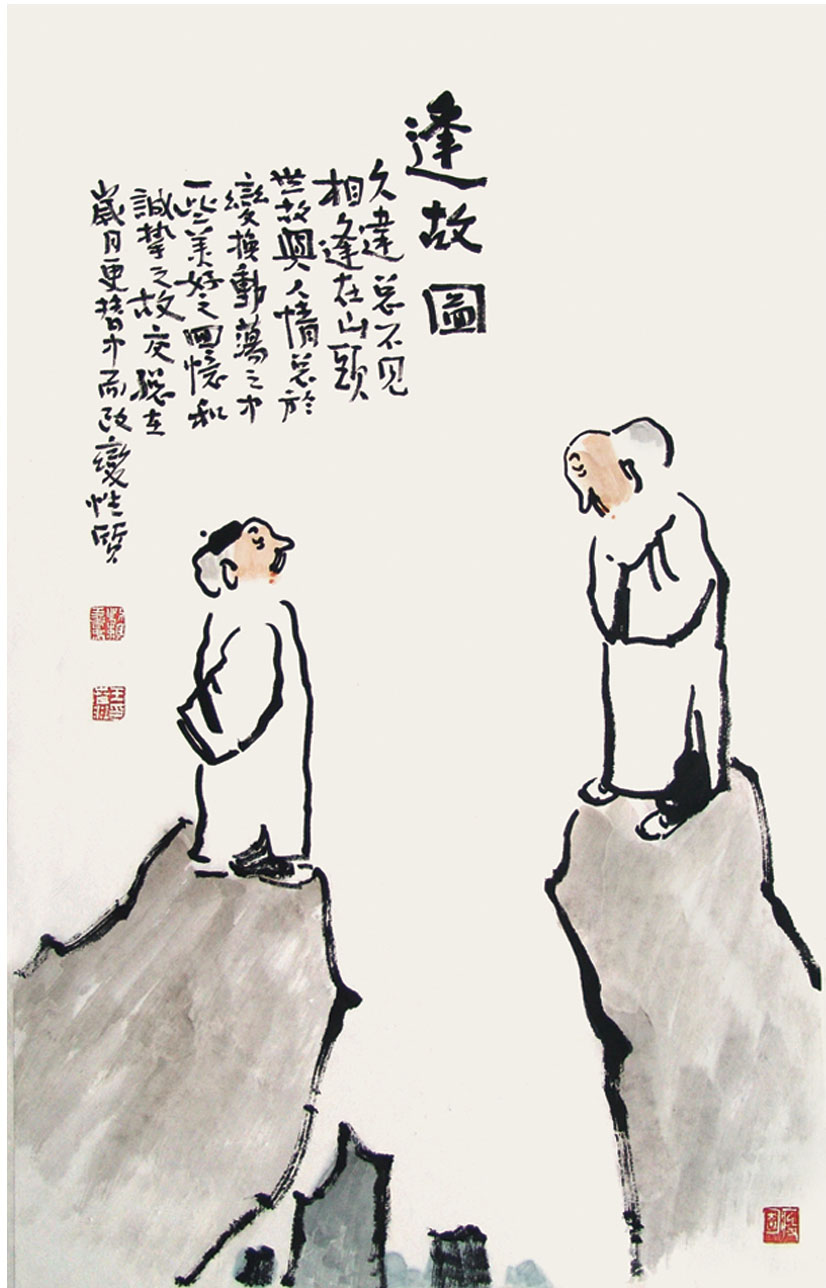 逢故圖
久違总不见
相逢在山頭
世故與人情总於
變换動蕩之中
一些美好之回憶和
誠摯之故交總在
歲月更替中而改變性質